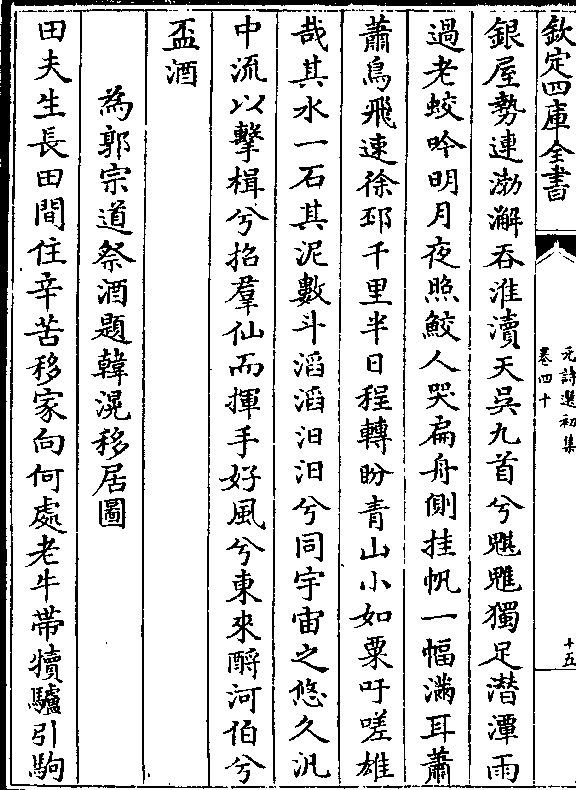 欽定四庫全書
元詩選初集
卷四十
十五
銀屋勢連渤澥吞淮瀆天吳九首兮魌雖獨足潛潭雨
過老蛟吟明月夜照鮫人哭扁舟側挂帆一幅滿耳蕭
蕭鳥飛速徐邳千里半日程轉盼青山小如粟吁嗟雄
哉其水一石其泥數斗滔滔汩汩兮同宇宙之悠久汎
中流以擊楫兮招羣仙而揮手好風兮東來酹河伯兮
盃酒
為郭宗道祭酒題韓滉移居圖
田夫生長田間住辛苦移家向何處老牛帶犢驢引駒